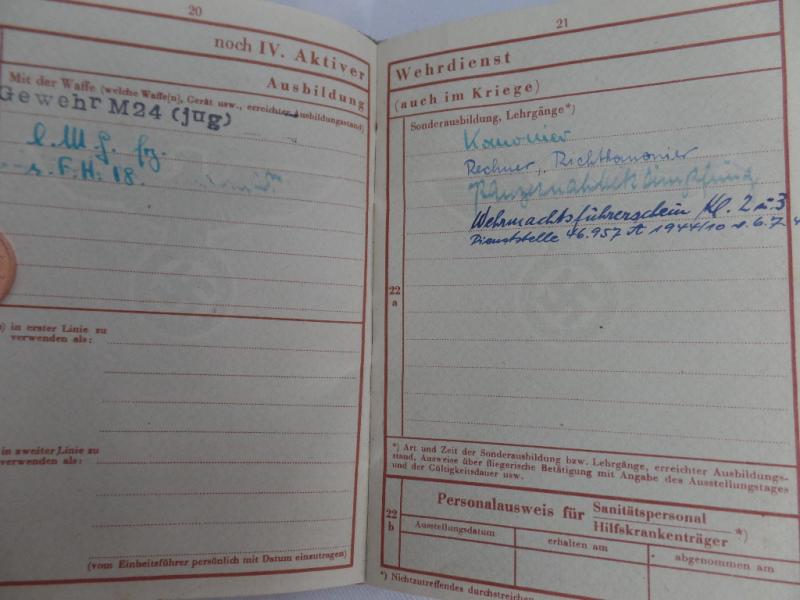 20
noch IV. Aktiver
Ausbildung
Mit der Waffe (welche Waffe[n], Gerät usw., erreichter Ausbildungsstand)
Gewehr M24 (jug)
l. M. G. frz.
s. F. H. 18.
in erster Linie zu
verwenden als:
in zweiter Linie zu
verwenden als:
(vom Einheitsführer persönlich mit Datum einzutragen)
21
Wehrdienst
(auch im Kriege)
Sonderausbildung, Lehrgänge*)
Kanonier
Rechner, Richtkanonier
Panzernahbekämpfung
Wehrmachtsführerschein Kl. 2 u 3
Dienststelle 46.957 A 1944/10 v. 6.7.
22
a
*) Art und Zeit der Sonderausbildung bzw. Lehrgänge, erreichter Ausbildungs-
stand, Ausweise über fliegerische Betätigung mit Angabe des Ausstellungstages
und der Gültigkeitsdauer usw.
22
b
Personalausweis für Sanitätspersonal *)
Hilfskrankenträger
Ausstellungsdatum
erhalten am
abgenommen am
*) Nichtzutreffendes durchstreichen